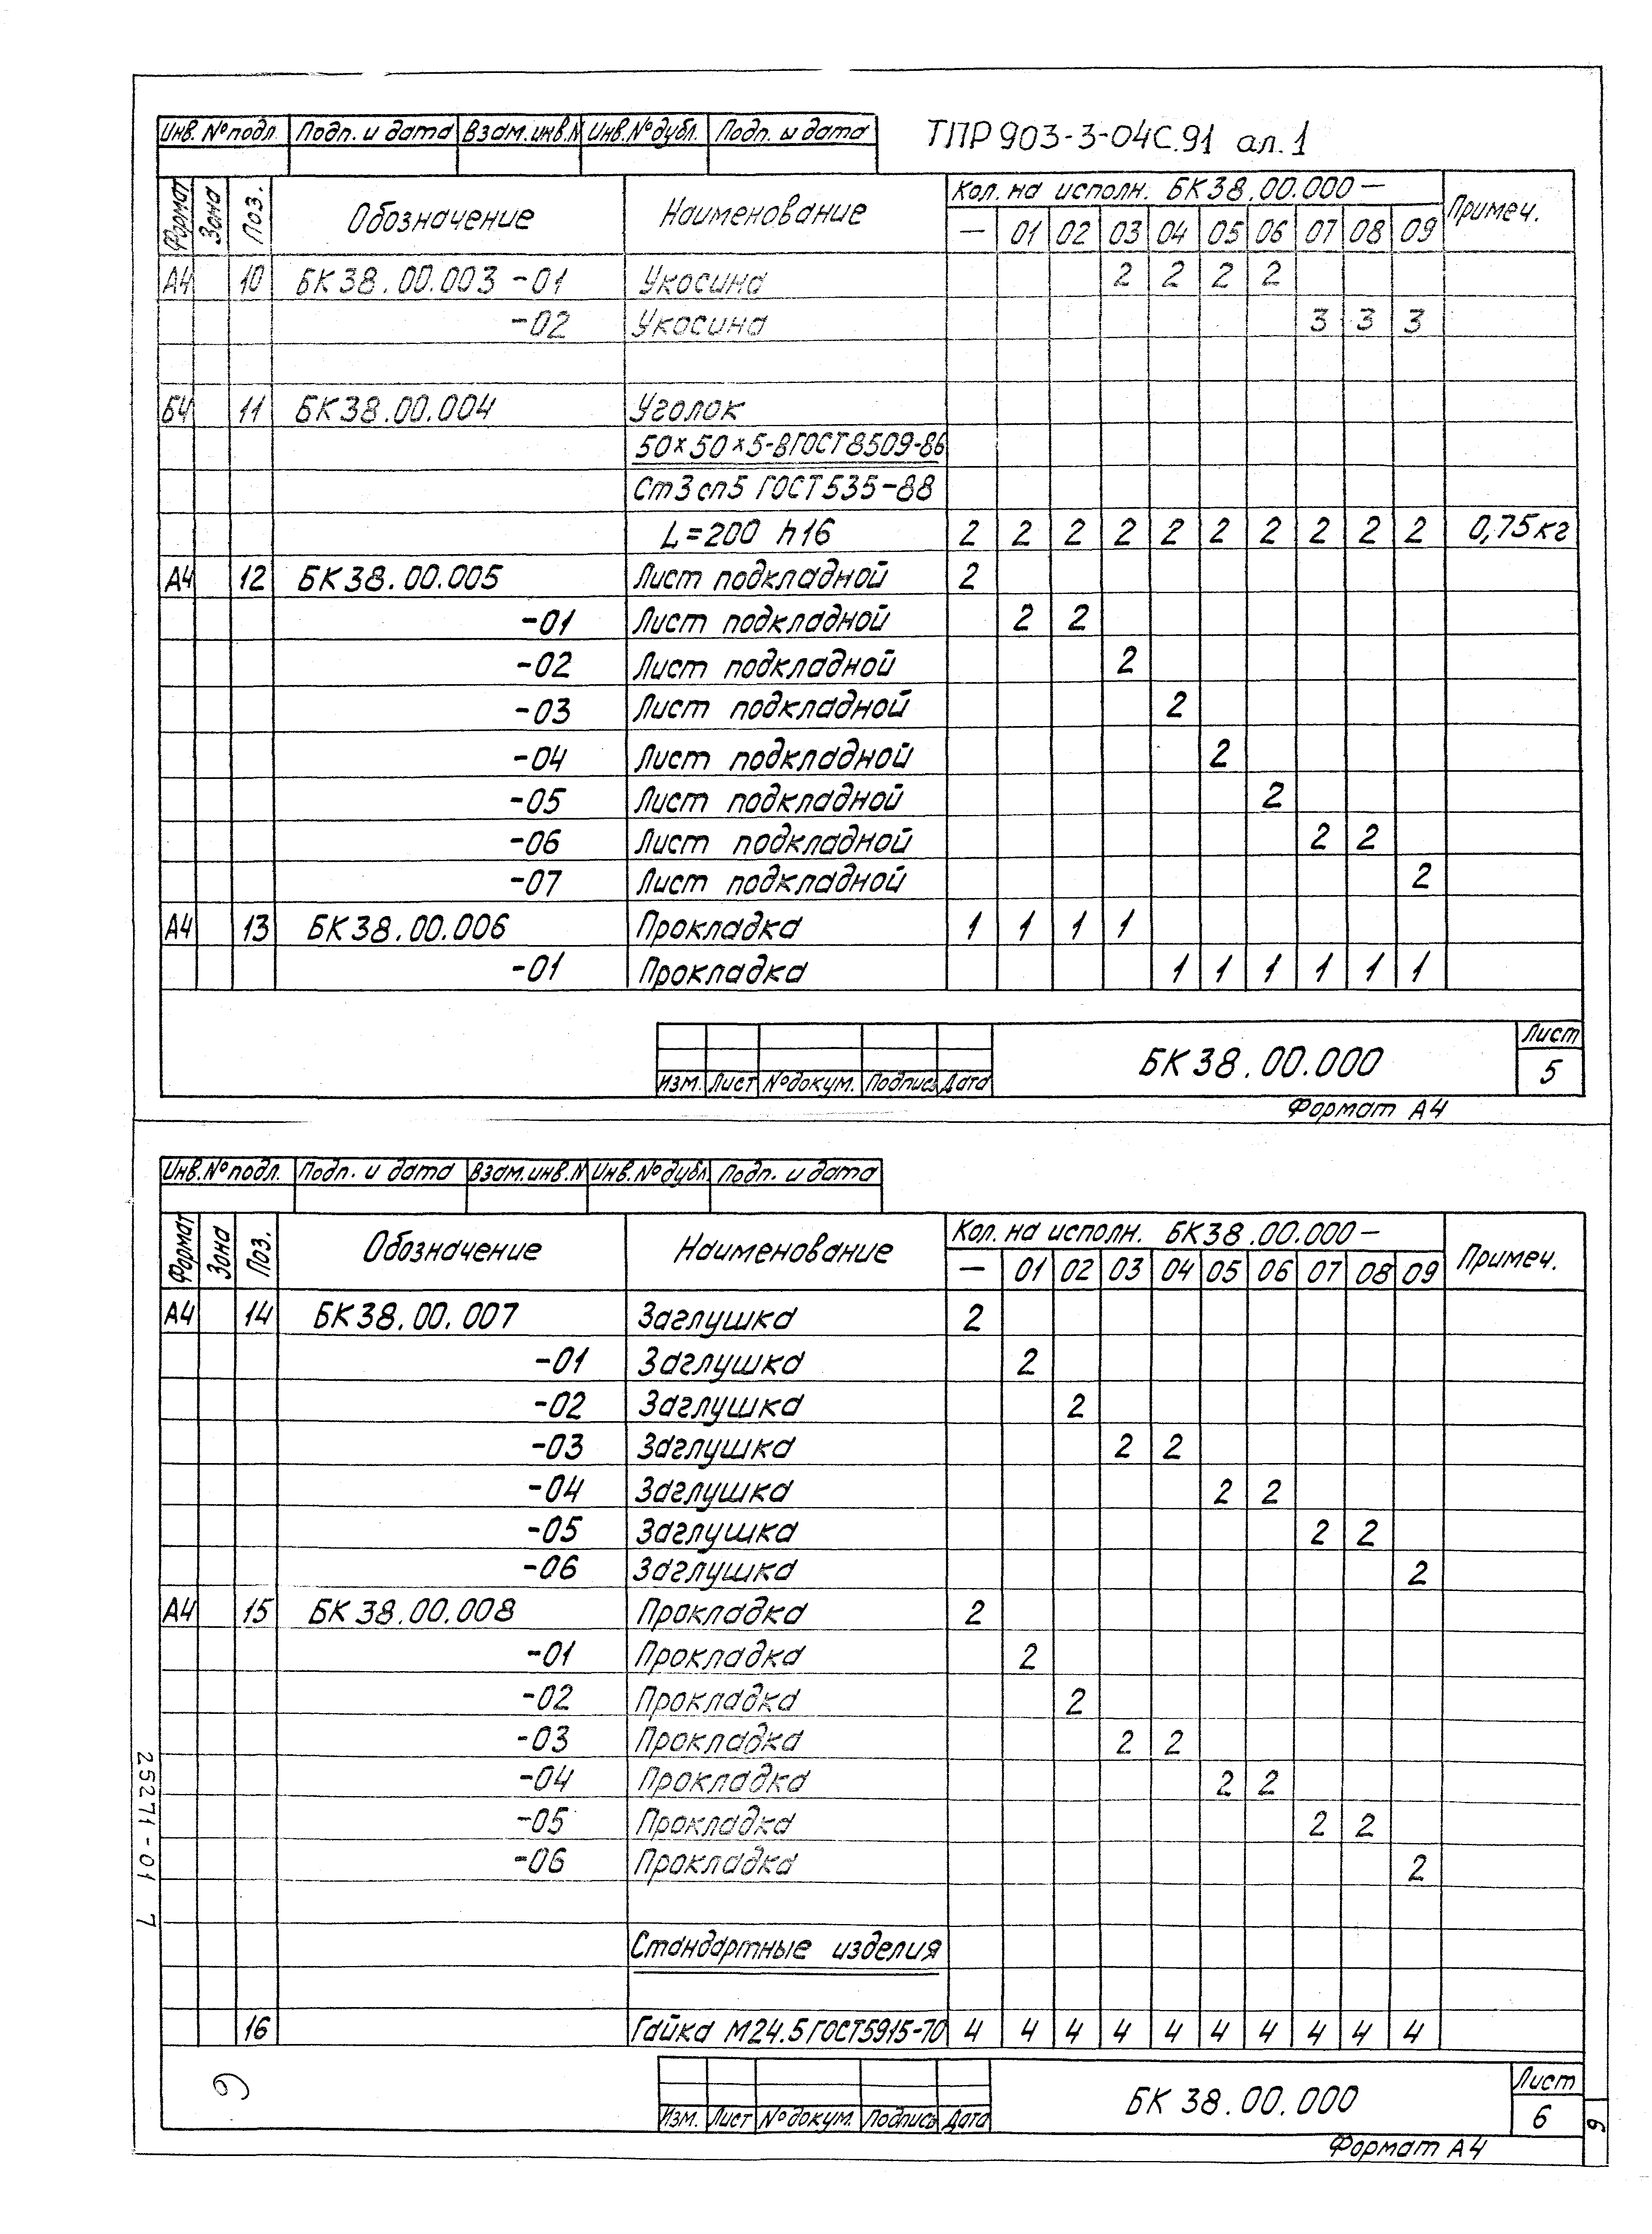 ТПР 903-3-04С.91 ал.1
Инв.№подл. Подп. и дата Взам.инв.№ Инв.№дубл. Подп. и дата
Формат Зона Поз. Обозначение Наименование Кол. на исполн. БК38.00.000— Примеч.
— 01 02 03 04 05 06 07 08 09
А4 10 БК38.00.003-01 Укосина 2 2 2 2
-02 Укосина 3 3 3
Б4 11 БК38.00.004 Уголок
50х50х5-8ГОСТ8509-86
Ст3сп5 ГОСТ535-88
L=200 h16 2 2 2 2 2 2 2 2 2 2 0,75кг
А4 12 БК38.00.005 Лист подкладной 2
-01 Лист подкладной 2 2
-02 Лист подкладной 2
-03 Лист подкладной 2
-04 Лист подкладной 2
-05 Лист подкладной 2
-06 Лист подкладной 2 2
-07 Лист подкладной 2
А4 13 БК38.00.006 Прокладка 1 1 1 1
-01 Прокладка 1 1 1 1 1 1
Изм. Лист №докум. Подпись Дата БК38.00.000 Лист
5
Формат А4
Инв.№подл. Подп. и дата Взам.инв.№ Инв.№дубл. Подп. и дата
Формат Зона Поз. Обозначение Наименование Кол. на исполн. БК38.00.000— Примеч.
— 01 02 03 04 05 06 07 08 09
А4 14 БК38.00.007 Заглушка 2
-01 Заглушка 2
-02 Заглушка 2
-03 Заглушка 2 2
-04 Заглушка 2 2
-05 Заглушка 2 2
-06 Заглушка 2
А4 15 БК38.00.008 Прокладка 2
-01 Прокладка 2
-02 Прокладка 2
-03 Прокладка 2 2
-04 Прокладка 2 2
-05 Прокладка 2 2
-06 Прокладка 2
Стандартные изделия
16 Гайка М24.5ГОСТ5915-70 4 4 4 4 4 4 4 4 4 4
Изм. Лист №докум. Подпись Дата БК 38.00.000 Лист
6
Формат А4
25271-01 7
6
6